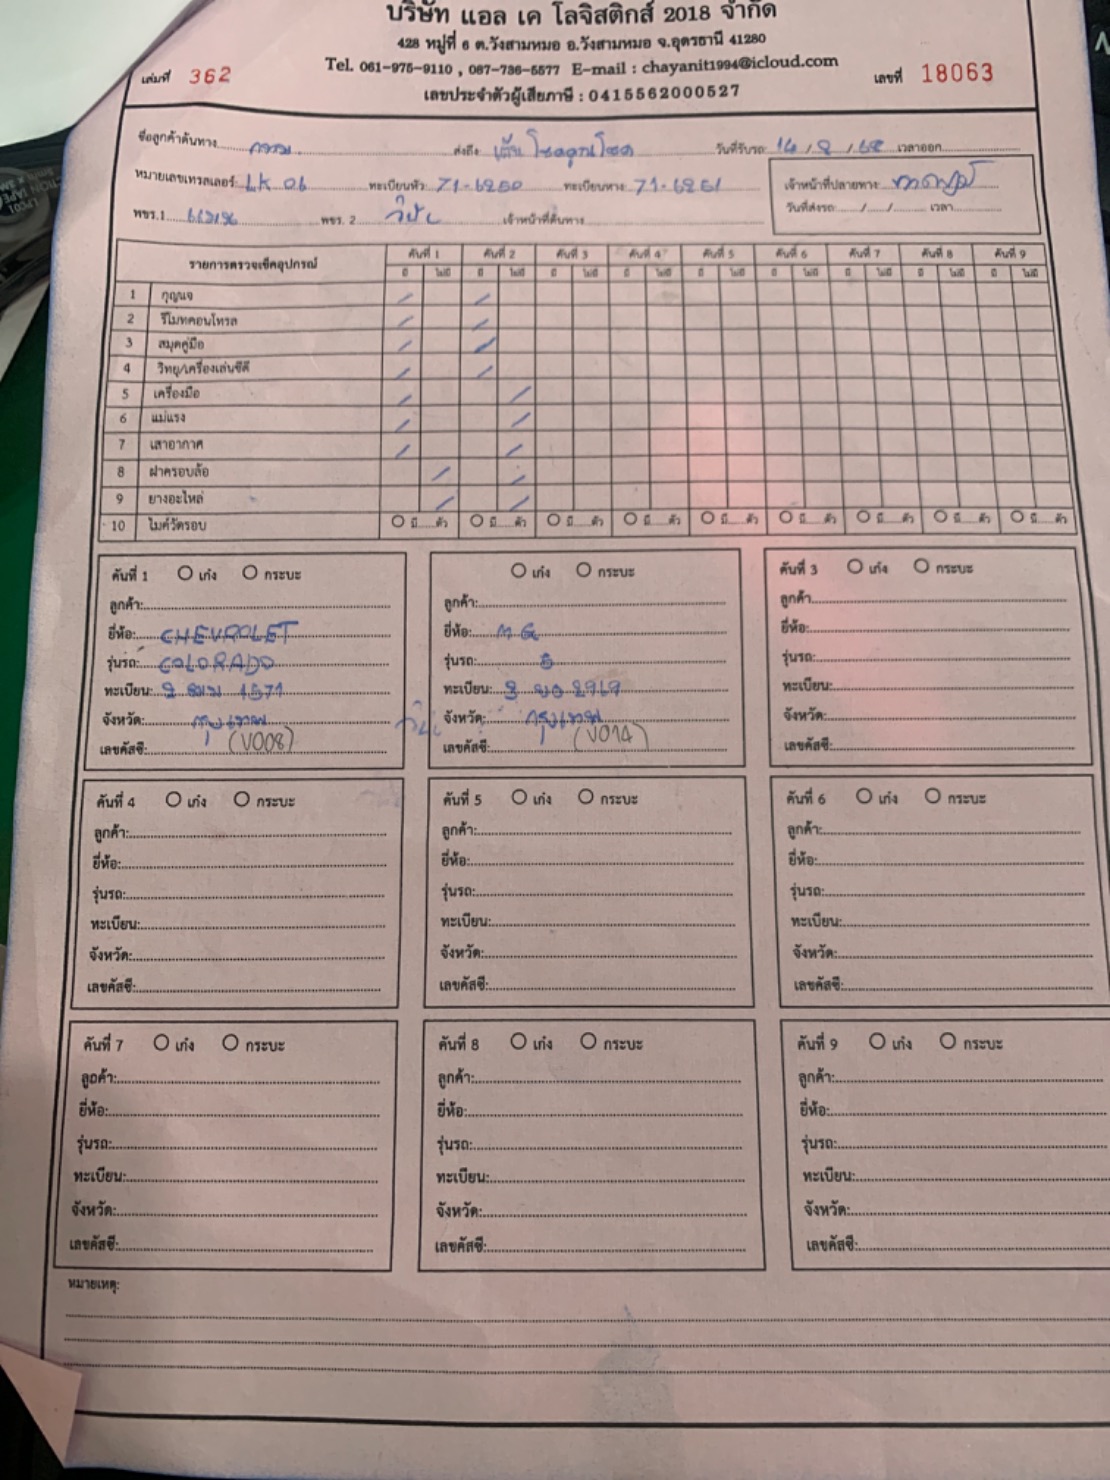 บริษัท แอล เค โลจิสติกส์ 2018 จำกัด
428 หมู่ที่ 6 ต.วังสามหมอ อ.วังสามหมอ จ.อุดรธานี 41280
Tel. 061-975-9110 , 087-736-5577 E-mail : chayanit1994@icloud.com
เล่มที่ 362 เลขที่ 18063
เลขประจำตัวผู้เสียภาษี : 0415562000527
ชื่อลูกค้าต้นทาง ส่งถึง วันที่รับรถ 14 / 8 / 68 เวลาออก
หมายเลขเทรลเลอร์ LK 06 ทะเบียนหัว 71-6250 ทะเบียนหาง 71-6251 เจ้าหน้าที่ปลายทาง
พขร.1 พขร. 2 เจ้าหน้าที่ต้นทาง วันที่ส่งรถ / / เวลา
รายการตรวจเช็คอุปกรณ์ คันที่ 1 คันที่ 2 คันที่ 3 คันที่ 4 คันที่ 5 คันที่ 6 คันที่ 7 คันที่ 8 คันที่ 9
มี ไม่มี มี ไม่มี มี ไม่มี มี ไม่มี มี ไม่มี มี ไม่มี มี ไม่มี มี ไม่มี มี ไม่มี
1 กุญแจ
2 รีโมทคอนโทรล
3 สมุดคู่มือ
4 วิทยุ/เครื่องเล่นซีดี
5 เครื่องมือ
6 แม่แรง
7 เสาอากาศ
8 ฝาครอบล้อ
9 ยางอะไหล่
10 ไมค์วัดรอบ มี ตัว มี ตัว มี ตัว มี ตัว มี ตัว มี ตัว มี ตัว มี ตัว มี ตัว
คันที่ 1 เก๋ง กระบะ
ลูกค้า:
ยี่ห้อ: CHEVROLET
รุ่นรถ: COLORADO
ทะเบียน: 1571
จังหวัด: กรุงเทพ
เลขคัสซี: (V008)
เก๋ง กระบะ
ลูกค้า:
ยี่ห้อ: MG
รุ่นรถ: 5
ทะเบียน:
จังหวัด: กรุงเทพ
เลขคัสซี: (V014)
คันที่ 3 เก๋ง กระบะ
ลูกค้า:
ยี่ห้อ:
รุ่นรถ:
ทะเบียน:
จังหวัด:
เลขคัสซี:
คันที่ 4 เก๋ง กระบะ
ลูกค้า:
ยี่ห้อ:
รุ่นรถ:
ทะเบียน:
จังหวัด:
เลขคัสซี:
คันที่ 5 เก๋ง กระบะ
ลูกค้า:
ยี่ห้อ:
รุ่นรถ:
ทะเบียน:
จังหวัด:
เลขคัสซี:
คันที่ 6 เก๋ง กระบะ
ลูกค้า:
ยี่ห้อ:
รุ่นรถ:
ทะเบียน:
จังหวัด:
เลขคัสซี:
คันที่ 7 เก๋ง กระบะ
ลูกค้า:
ยี่ห้อ:
รุ่นรถ:
ทะเบียน:
จังหวัด:
เลขคัสซี:
คันที่ 8 เก๋ง กระบะ
ลูกค้า:
ยี่ห้อ:
รุ่นรถ:
ทะเบียน:
จังหวัด:
เลขคัสซี:
คันที่ 9 เก๋ง กระบะ
ลูกค้า:
ยี่ห้อ:
รุ่นรถ:
ทะเบียน:
จังหวัด:
เลขคัสซี:
หมายเหตุ: